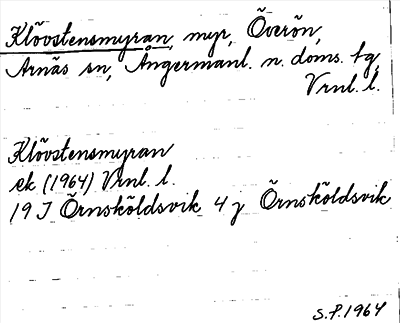 Klövstensmyran, myr, Överön,
Arnäs sn, Ångermanl. n. doms. tg,
Vrnl. l.
Klövstensmyran
ek (1964) Vrnl. l.
19 J Örnsköldsvik 4 j Örnsköldsvik
S.P. 1964